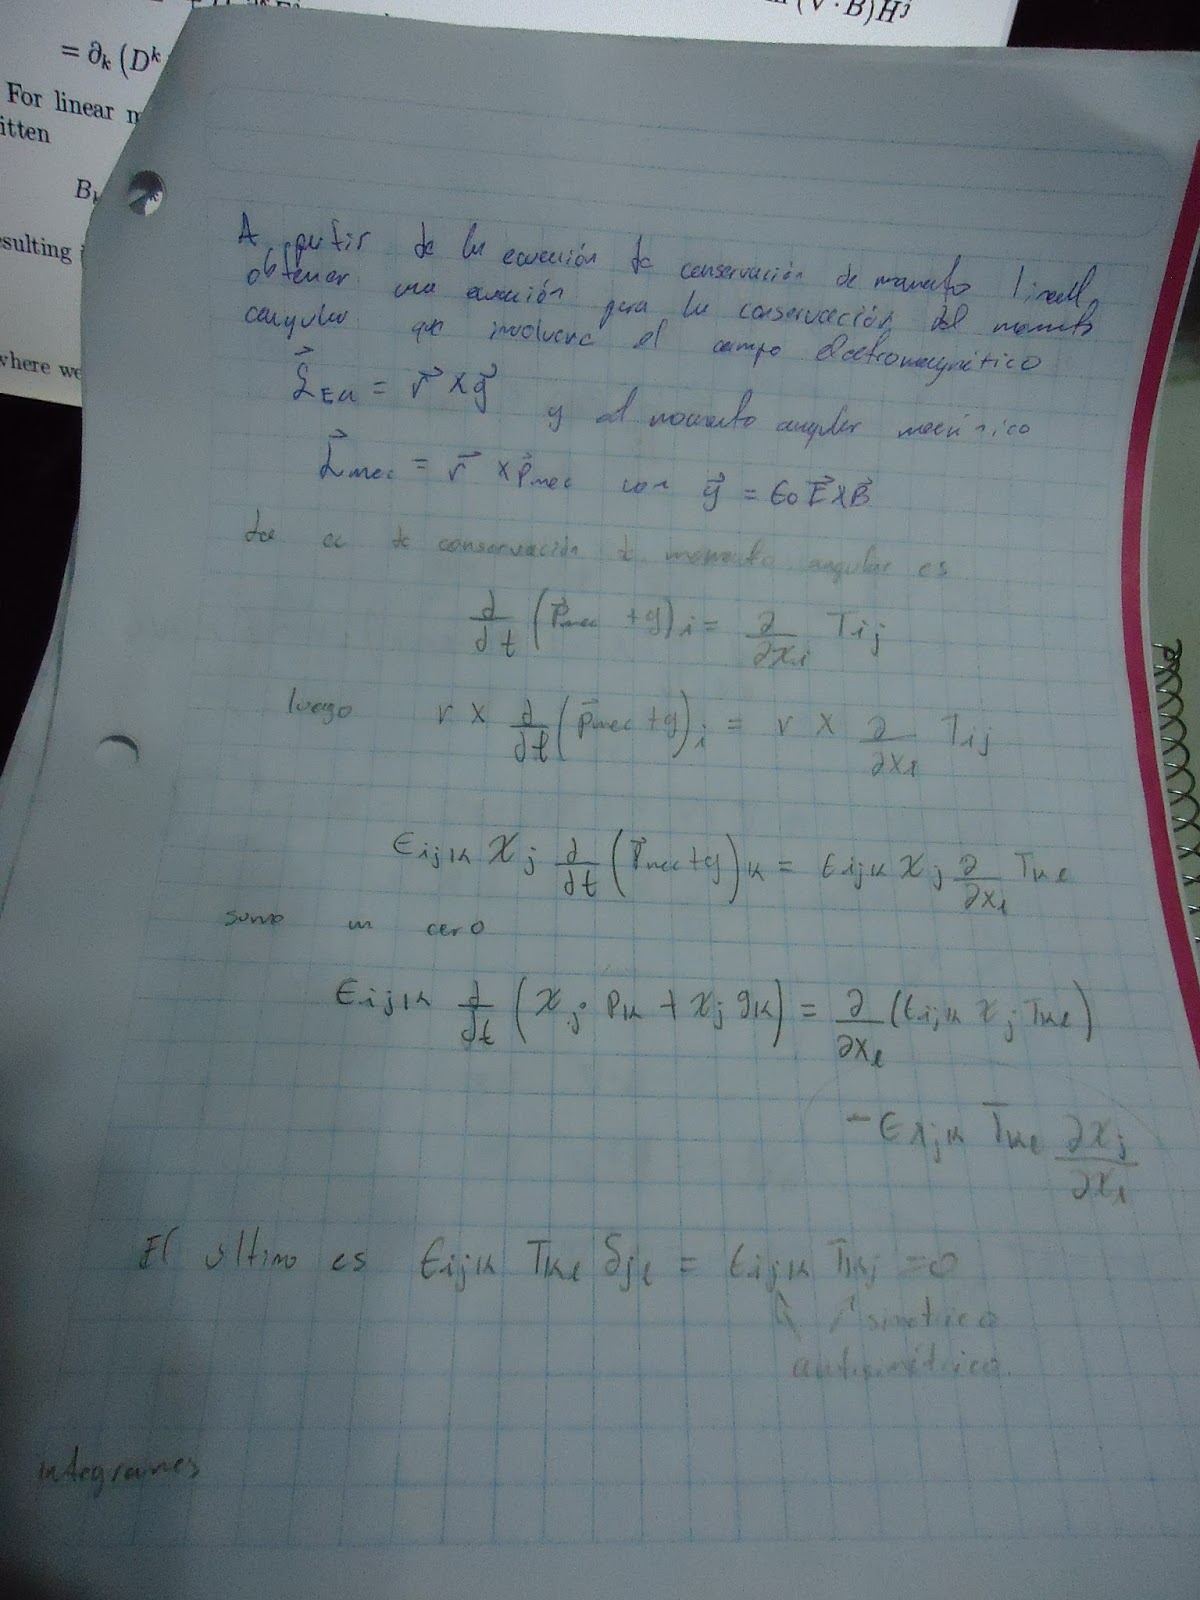 (∇ · B)H^j
= ∂_k (D^k
For linear m
itten
B
esulting
where we
A partir de la ecuación de conservación de momento lineal,
obtener una ecuación para la conservación del momento
angular que involucra el campo electromagnético
L⃗_EM = r⃗ × g⃗ y el momento angular mecánico
L⃗_mec = r⃗ × p⃗_mec con g⃗ = ϵ₀ E⃗ × B⃗
la ec de conservación de momento angular es
∂/∂t (p⃗_mec + g)_i = ∂/∂x_i T_ij
luego r × ∂/∂t (p⃗_mec + g)_i = r × ∂/∂x_l T_ij
ϵ_ijk x_j ∂/∂t (p⃗_mec + g)_k = ϵ_ijk x_j ∂/∂x_l T_kl
sumo un cero
ϵ_ijk ∂/∂t (x_j p_k + x_j g_k) = ∂/∂x_l (ϵ_ijk x_j T_kl)
− ϵ_ijk T_kl ∂x_j/∂x_l
El ultimo es ϵ_ijk T_kl δ_jl = ϵ_ijk T_kj = 0
simetrico
antisimétrico.
integrames